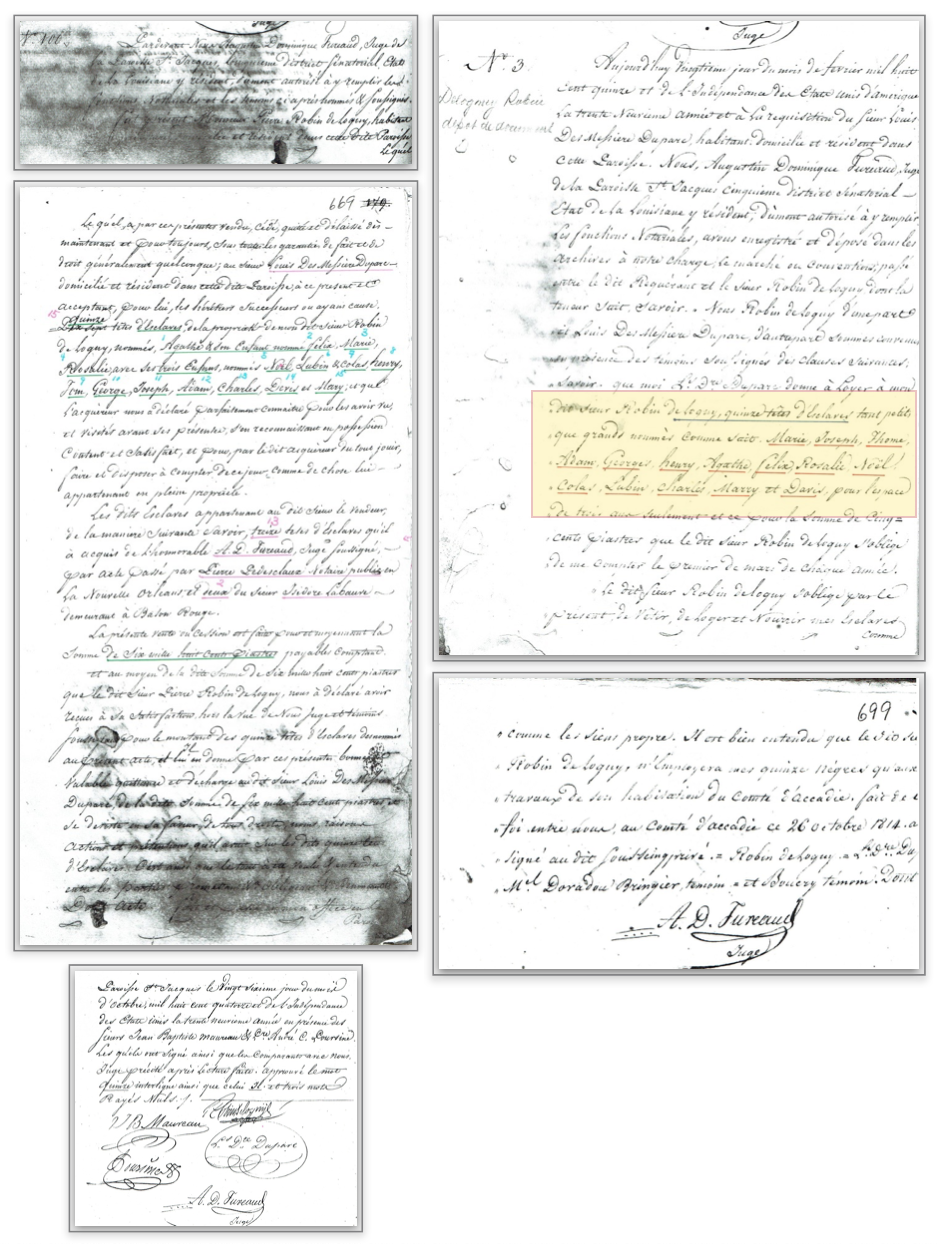 Juge
N°. 106.
Pardevant Nous Augustin Dominique Tureaud, Juge de
la Paroisse St. Jacques, cinquième district Sénatorial, Etat
de la Louisiane y résident, dument autorisé à y remplir les
fonctions Notariales et les témoins ci après nommés & soussignés
à présent Sieur Pierre Robin de Logny, habitant
et résident dans cette dite Paroisse
Le quel
669
Le quel, a par ces présentes vendu, cédé, quitté et délaissé dès
maintenant et pour toujours, sous toutes les garanties de fait et de
droit généralement quelconque; au Sieur Louis Des Messière Dupare
domicilié et résident dans cette dite Paroisse, à ce présent et
acceptant, pour lui, ses héritiers successeurs ou ayant cause
15
Quinze
Dix sept têtes d'Esclaves, de la propriété de mon dit Sieur Robin
de Logny, nommés, Agathe & son Enfant nommé Félix, Marie,
Rosalie avec ses trois Enfans, nommés Noël Lubin & Colas, henry,
Tom, George, Joseph, Adam, Charles, Davis et Mary, ce que
l'acquéreur nous a déclaré parfaitement connaître pour les avoir vus
et visités avant ces présentes, s'en reconnaissant en possession
Content et Satisfait, et pour, par le dit acquéreur du tout jouir,
faire et disposer à compter de ce jour, comme de chose lui
appartenant en pleine propriété.
Les dits Esclaves appartenant au dit Sieur le Vendeur,
13
de la manière Suivante Savoir, treize têtes d'Esclaves qu'il
a acquis de L'honorable A. D. Tureaud, Juge soussigné,
par acte passé par Pierre Pedesclaux Notaire public en
La Nouvelle Orléans, et deux du Sieur Isidore Labauve
demeurant à Baton Rouge.
La présente vente ou Cession est faite pour et moyennant la
Somme de Six mille huit cents piastres payables Comptant.
et au moyen de la dite Somme de Six mille huit cent piastres
que le dit Sieur Pierre Robin de Logny, nous a déclaré avoir
reçues à Sa Satisfaction, hors la vue de Nous Juge et témoins
soussignés pour le montant des quinze têtes d'Esclaves dénommés
au présent acte, et lui en donne par ces présentes bonne &
Valable quittance et décharge au dit Sieur Louis Des Messière
Dupare, de la dite Somme de six mille huit cent piastres et
se désiste en sa faveur, de tous droits, noms, raisons
actions et prétentions qu'il avait sur les dits quinze têtes
d'Esclaves.
Dont acte
Paroisse St. Jacques le Vingt Sixieme jour du mois
d'Octobre, mil huit cent quatorze et de l'Indépendance
des Etats Unis la trente neuvième année en présence des
Sieurs Jean Baptiste Maureau & André C. Coursine.
Les quels ont signé ainsi que les Comparants avec nous
Juge précité après Lecture faite. approuvé le mot
Quinze interligne ainsi que celui et trois mots
Rayés Nuls.
J B Maureau
Ls. Dre. Dupare
A. D. Tureaud
Juge
Juge
N°. 3
Delogny Robin
dépot de document
Aujourd'huy vingtième jour du mois de fevrier mil huit
cent quinze et de l'Indépendance des Etats unis d'amérique
La trente Neuvième année et à La requisition du Sieur Louis
Des Messière Dupare, habitant domicilié et résident dans
Cette Paroisse. Nous, Augustin Dominique Tureaud, Juge
de la Paroisse St. Jacques Cinquième district Sénatorial
Etat de la Louisiane y résident, Dument autorisé à y remplir
Les fonctions Notariales, avons enregistré et déposé dans les
archives à notre charge, le marché ou convention, passé
entre le dit Requerant et le Sieur Robin de Logny dont la
teneur Suit, Savoir. Nous Robin de Logny d'une part
et Louis Des Messière Dupare, d'autre part Sommes convenus
en présence des témoins Soussignés des clauses Suivantes,
Savoir. que moi Ls. Dre. Dupare donne à Loyer à mon
dit Sieur Robin de Logny, quinze têtes d'Esclaves tout petits
que grands nommés comme Suit. Marie, Joseph, Thome,
Adam, Georges, henry, Agathe, Celia, Rosalie Noël
Colas, Lubin, Charles, Marry et Davis, pour l'espace
de trois ans Seulement et ce pour la Somme de Cinq=
cents piastres que le dit Sieur Robin de Logny s'oblige
de me compter le premier de mars de chaque année.
Le dit Sieur Robin de Logny s'oblige par le
présent de Vétir, de Loger et Nourrir mes Esclaves
Comme
699
comme les siens propre. Il est bien entendu que le dit Sr
Robin de Logny, n'Employera mes quinze Nègres qu'aux
travaux de son habitation du Comté d'accadie. fait de
foi entre nous, au Comté d'accadie ce 26 octobre 1814. a
signé au dit Sousseingprivé. = Robin de Logny. Ls. Dre. Du
Mel Doradou Bringier, témoin et Bouery témoin. Dont
A. D. Tureaud
Juge